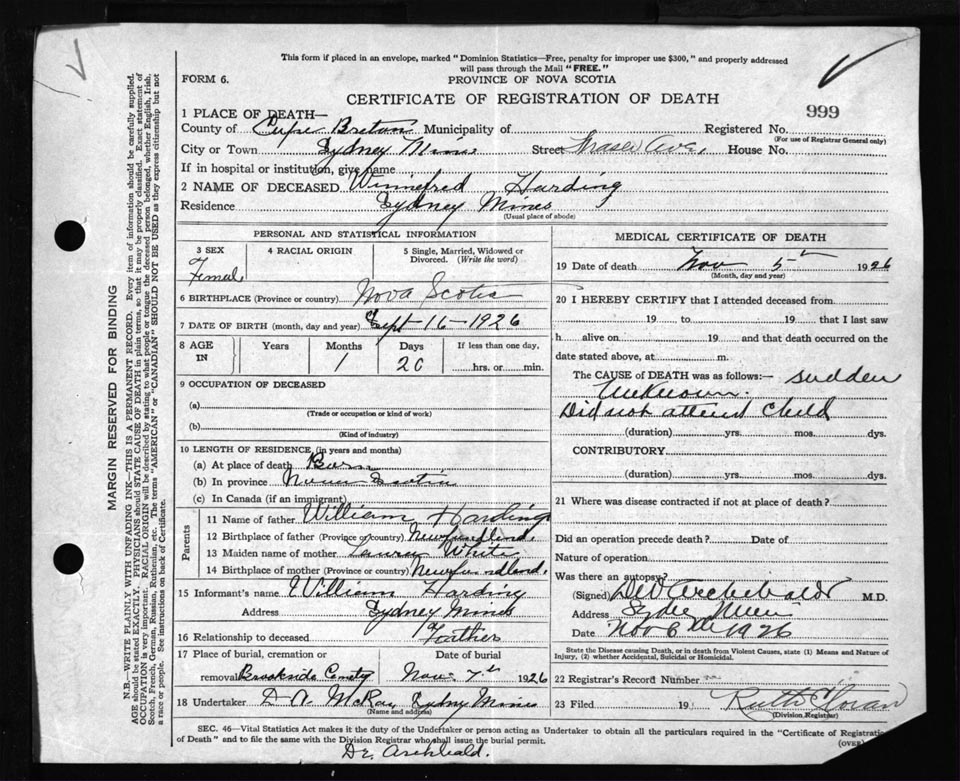 This form if placed in an envelope, marked "Dominion Statistics—Free, penalty for improper use $300," and properly addressed
will pass through the Mail "FREE."
FORM 6.
PROVINCE OF NOVA SCOTIA
CERTIFICATE OF REGISTRATION OF DEATH
999
1 PLACE OF DEATH—
County of Cape Breton Municipality of Registered No.
(For use of Registrar General only)
City or Town Sydney Mines Street Fraser Ave. House No.
If in hospital or institution, give name
2 NAME OF DECEASED Winnefred Harding
Residence Sydney Mines
(Usual place of abode)
PERSONAL AND STATISTICAL INFORMATION
3 SEX 4 RACIAL ORIGIN 5 Single, Married, Widowed or
Divorced. (Write the word)
Female
6 BIRTHPLACE (Province or country) Nova Scotia
7 DATE OF BIRTH (month, day and year) Sept-16-1926
8 AGE IN Years Months Days If less than one day,
1 20 hrs. or min.
9 OCCUPATION OF DECEASED
(a)
(Trade or occupation or kind of work)
(b)
(Kind of industry)
10 LENGTH OF RESIDENCE (in years and months)
(a) At place of death Born
(b) In province Nova Scotia
(c) In Canada (if an immigrant)
Parents
11 Name of father William Harding
12 Birthplace of father (Province or country) Newfundlind.
13 Maiden name of mother Laura White
14 Birthplace of mother (Province or country) Newfundland.
15 Informant's name William Harding
Address Sydney Mines
16 Relationship to deceased Father
17 Place of burial, cremation or Date of burial
removal Brookside Cemty Nov. 7th 1926
18 Undertaker D A McRay Sydney Mines
(Name and address)
MEDICAL CERTIFICATE OF DEATH
19 Date of death Nov 5th 1926
(Month, day and year)
20 I HEREBY CERTIFY that I attended deceased from
19 to 19 that I last saw
h alive on 19 and that death occurred on the
date stated above, at m.
The CAUSE of DEATH was as follows:— sudden
Unknown
Did not attend child
(duration) yrs. mos. dys.
CONTRIBUTORY
(duration) yrs. mos. dys.
21 Where was disease contracted if not at place of death?
Did an operation precede death? Date of
Nature of operation
Was there an autopsy?
(Signed) Archibald M.D.
Address
Date Nov 6th 1926
State the Disease causing Death, or in death from Violent Causes, state (1) Means and Nature of
Injury, (2) whether Accidental, Suicidal or Homicidal.
22 Registrar's Record Number
23 Filed 19 Ruth
(Division Registrar)
SEC. 46—Vital Statistics Act makes it the duty of the Undertaker or person acting as Undertaker to obtain all the particulars required in the "Certificate of Registration
of Death" and to file the same with the Division Registrar who shall issue the burial permit.
(OVER)
Dr. Archibald.
MARGIN RESERVED FOR BINDING
N.B.—WRITE PLAINLY WITH UNFADING INK—THIS IS A PERMANENT RECORD. Every item of information should be carefully supplied.
AGE should be stated EXACTLY. PHYSICIANS should STATE CAUSE OF DEATH in plain terms, so that it may be properly classified. Exact statement of
OCCUPATION is very important. RACIAL ORIGIN will be described by stating to what people or tongue the deceased person belonged, whether English, Irish,
Scotch, French, German, Russian, Ruthenian, etc. The terms "AMERICAN" or "CANADIAN" SHOULD NOT BE USED as they express citizenship but not
a race or people. See instructions on back of Certificate.